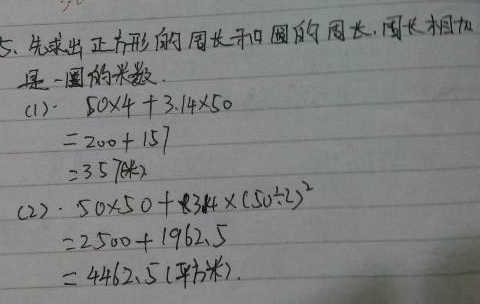 5、先求出正方形的周长和圆的周长.周长相加
是一圈的米数.
(1). 50×4+3.14×50
=200+157
=357(米)
(2). 50×50+3.14×(50÷2)²
=2500+1962.5
=4462.5(平方米).